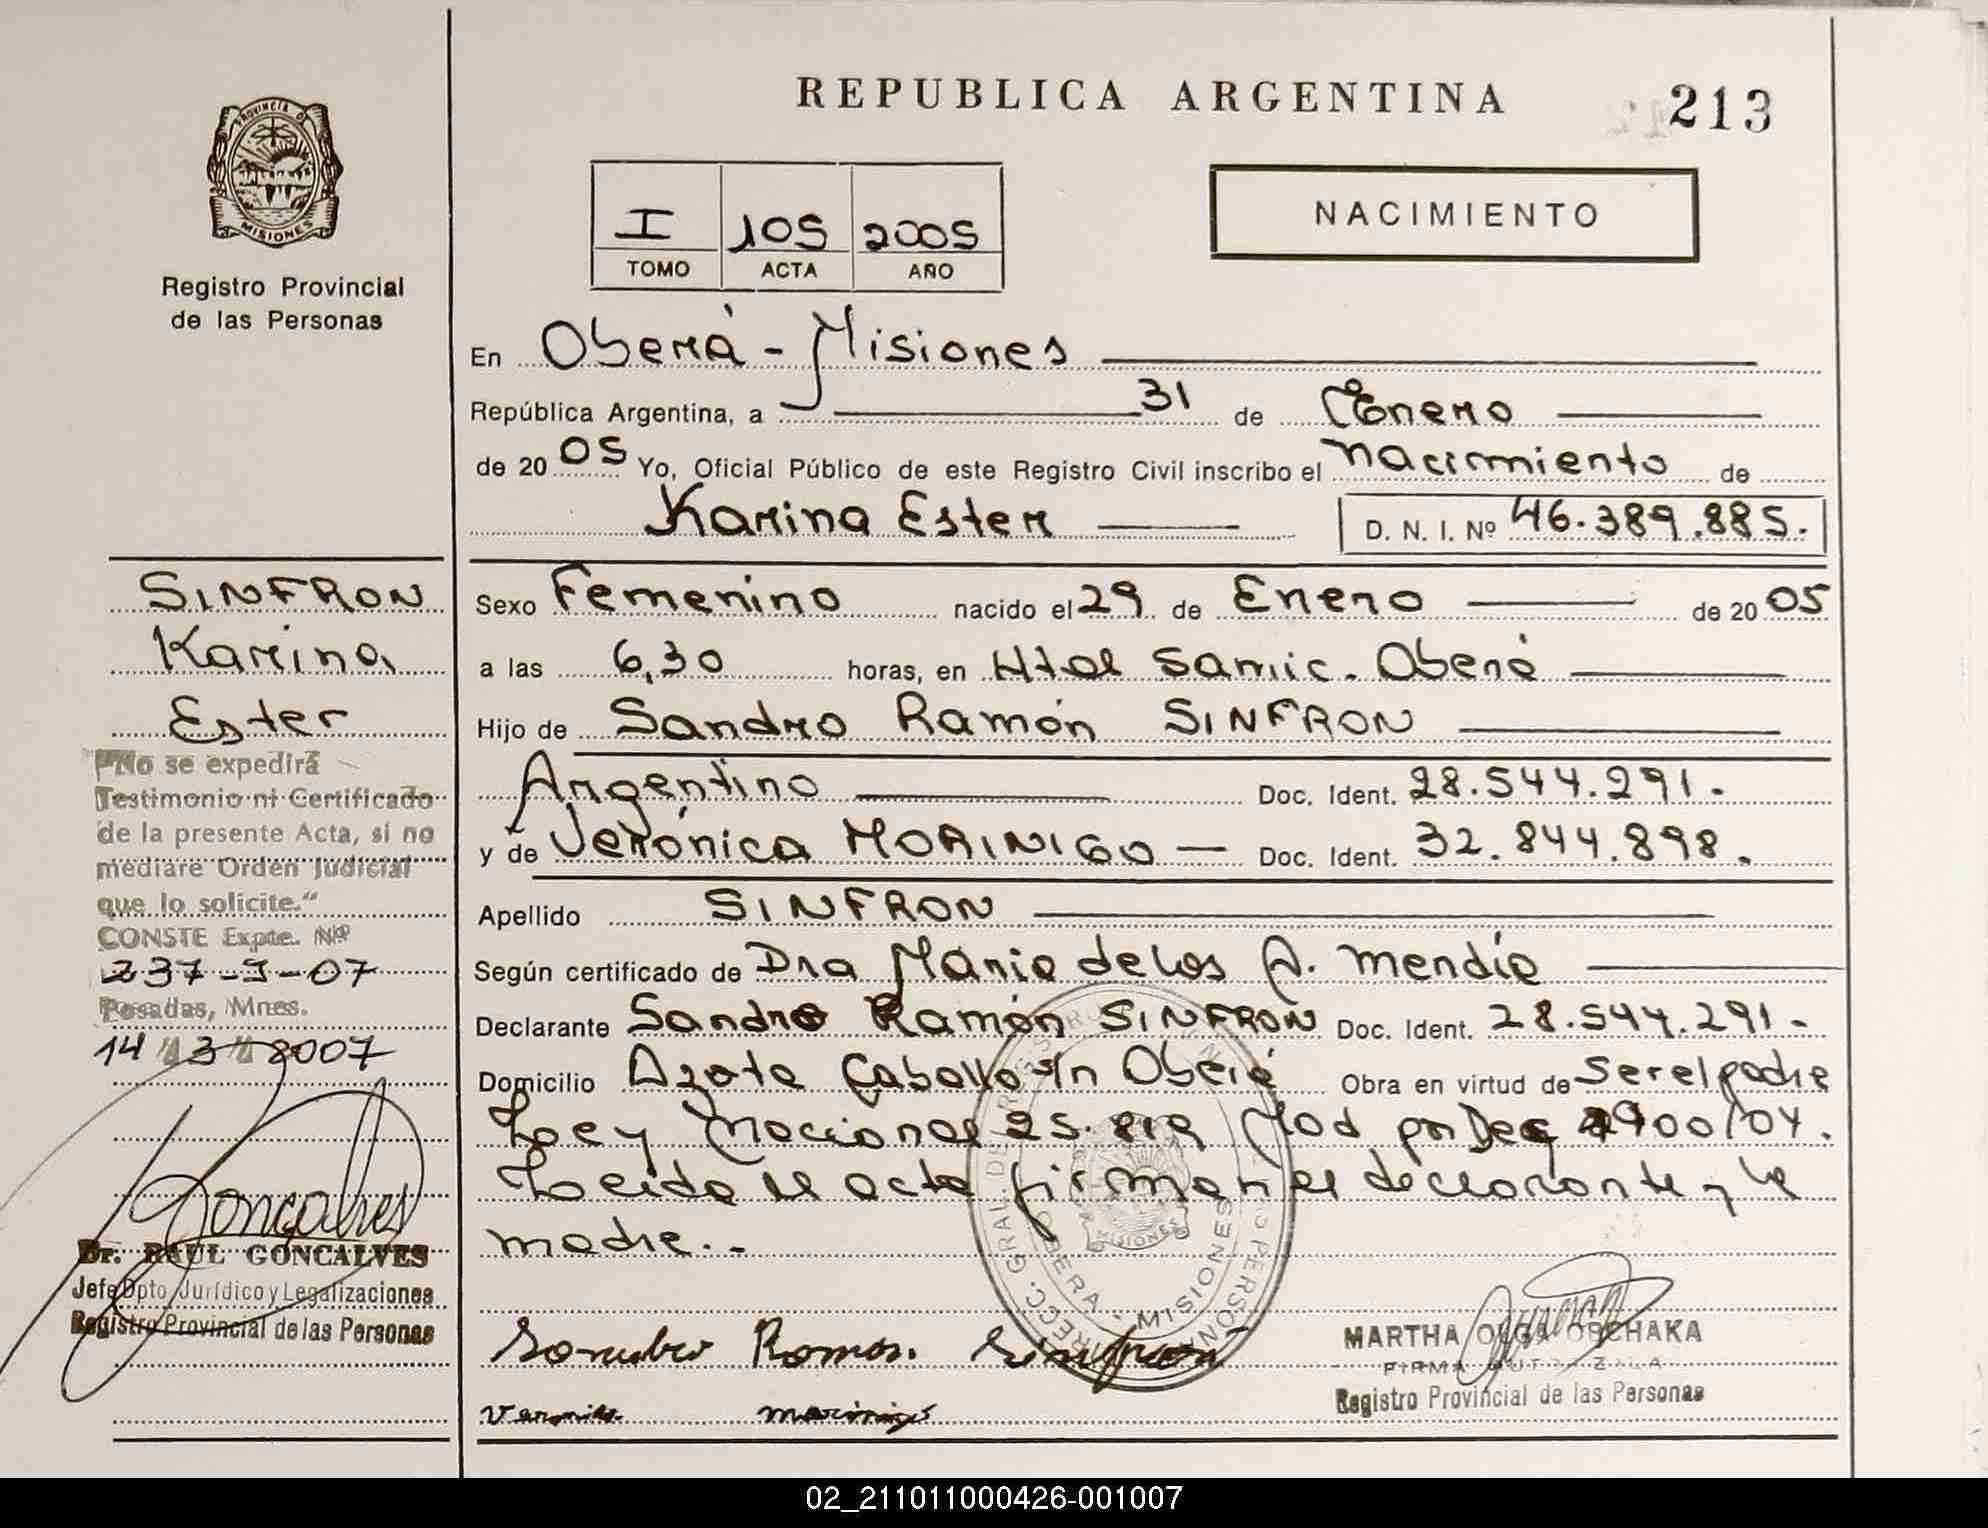 REPUBLICA ARGENTINA
213
PROVINCIA D
MISIONES
Registro Provincial
de las Personas
I 105 2005
TOMO ACTA AÑO
NACIMIENTO
En Oberá - Misiones
República Argentina, a 31 de Enero
de 20 05 Yo, Oficial Público de este Registro Civil inscribo el nacimiento de
Karina Ester D. N. I. Nº 46.389.885.
Sexo Femenino nacido el 29 de Enero de 20 05
a las 6,30 horas, en Htal Samic. Oberá
Hijo de Sandro Ramón SINFRON
Argentino Doc. Ident. 28.544.291.
y de Verónica MORINIGO Doc. Ident. 32.844.898.
Apellido SINFRON
Según certificado de Dra Maria de los A. Mendia
Declarante Sandro Ramón SINFRON Doc. Ident. 28.544.291.
Domicilio Azota Caballo s/n Oberá Obra en virtud de Ser el padre
Ley Nacional 25.819 Mod por Dec 1900/04.
Leida el acta firman el declarante y la
madre.-
Sandro Ramon Sinfron
Veronica morinigo
MARTHA OLGA OBCHAKA
FIRMA AUTORIZADA
Registro Provincial de las Personas
SINFRON
Karina
Ester
"No se expedirá
Testimonio ni Certificado
de la presente Acta, si no
mediare Orden Judicial
que lo solicite."
CONSTE Expte. Nº
237-J-07
Posadas, Mnes.
14 3 2007
Goncalves
Dr. RAUL GONCALVES
Jefe Dpto Jurídico y Legalizaciones
Registro Provincial de las Personas
OBERA - MISIONES
02_211011000426-001007